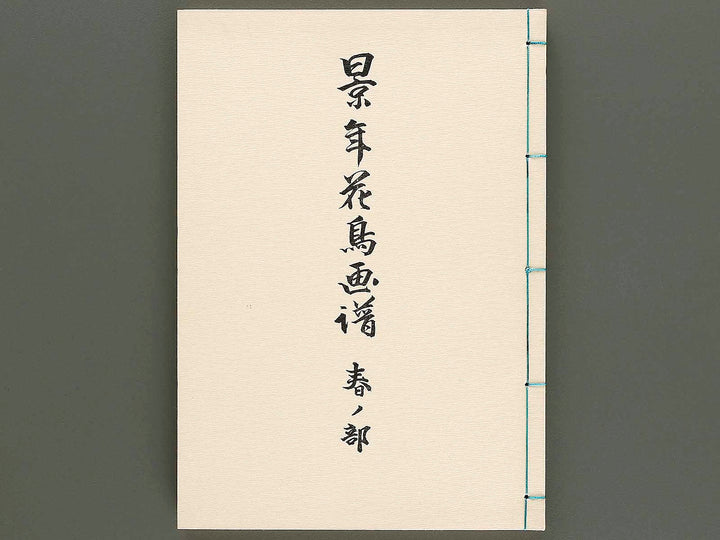 景年花鳥画谱 春ノ部